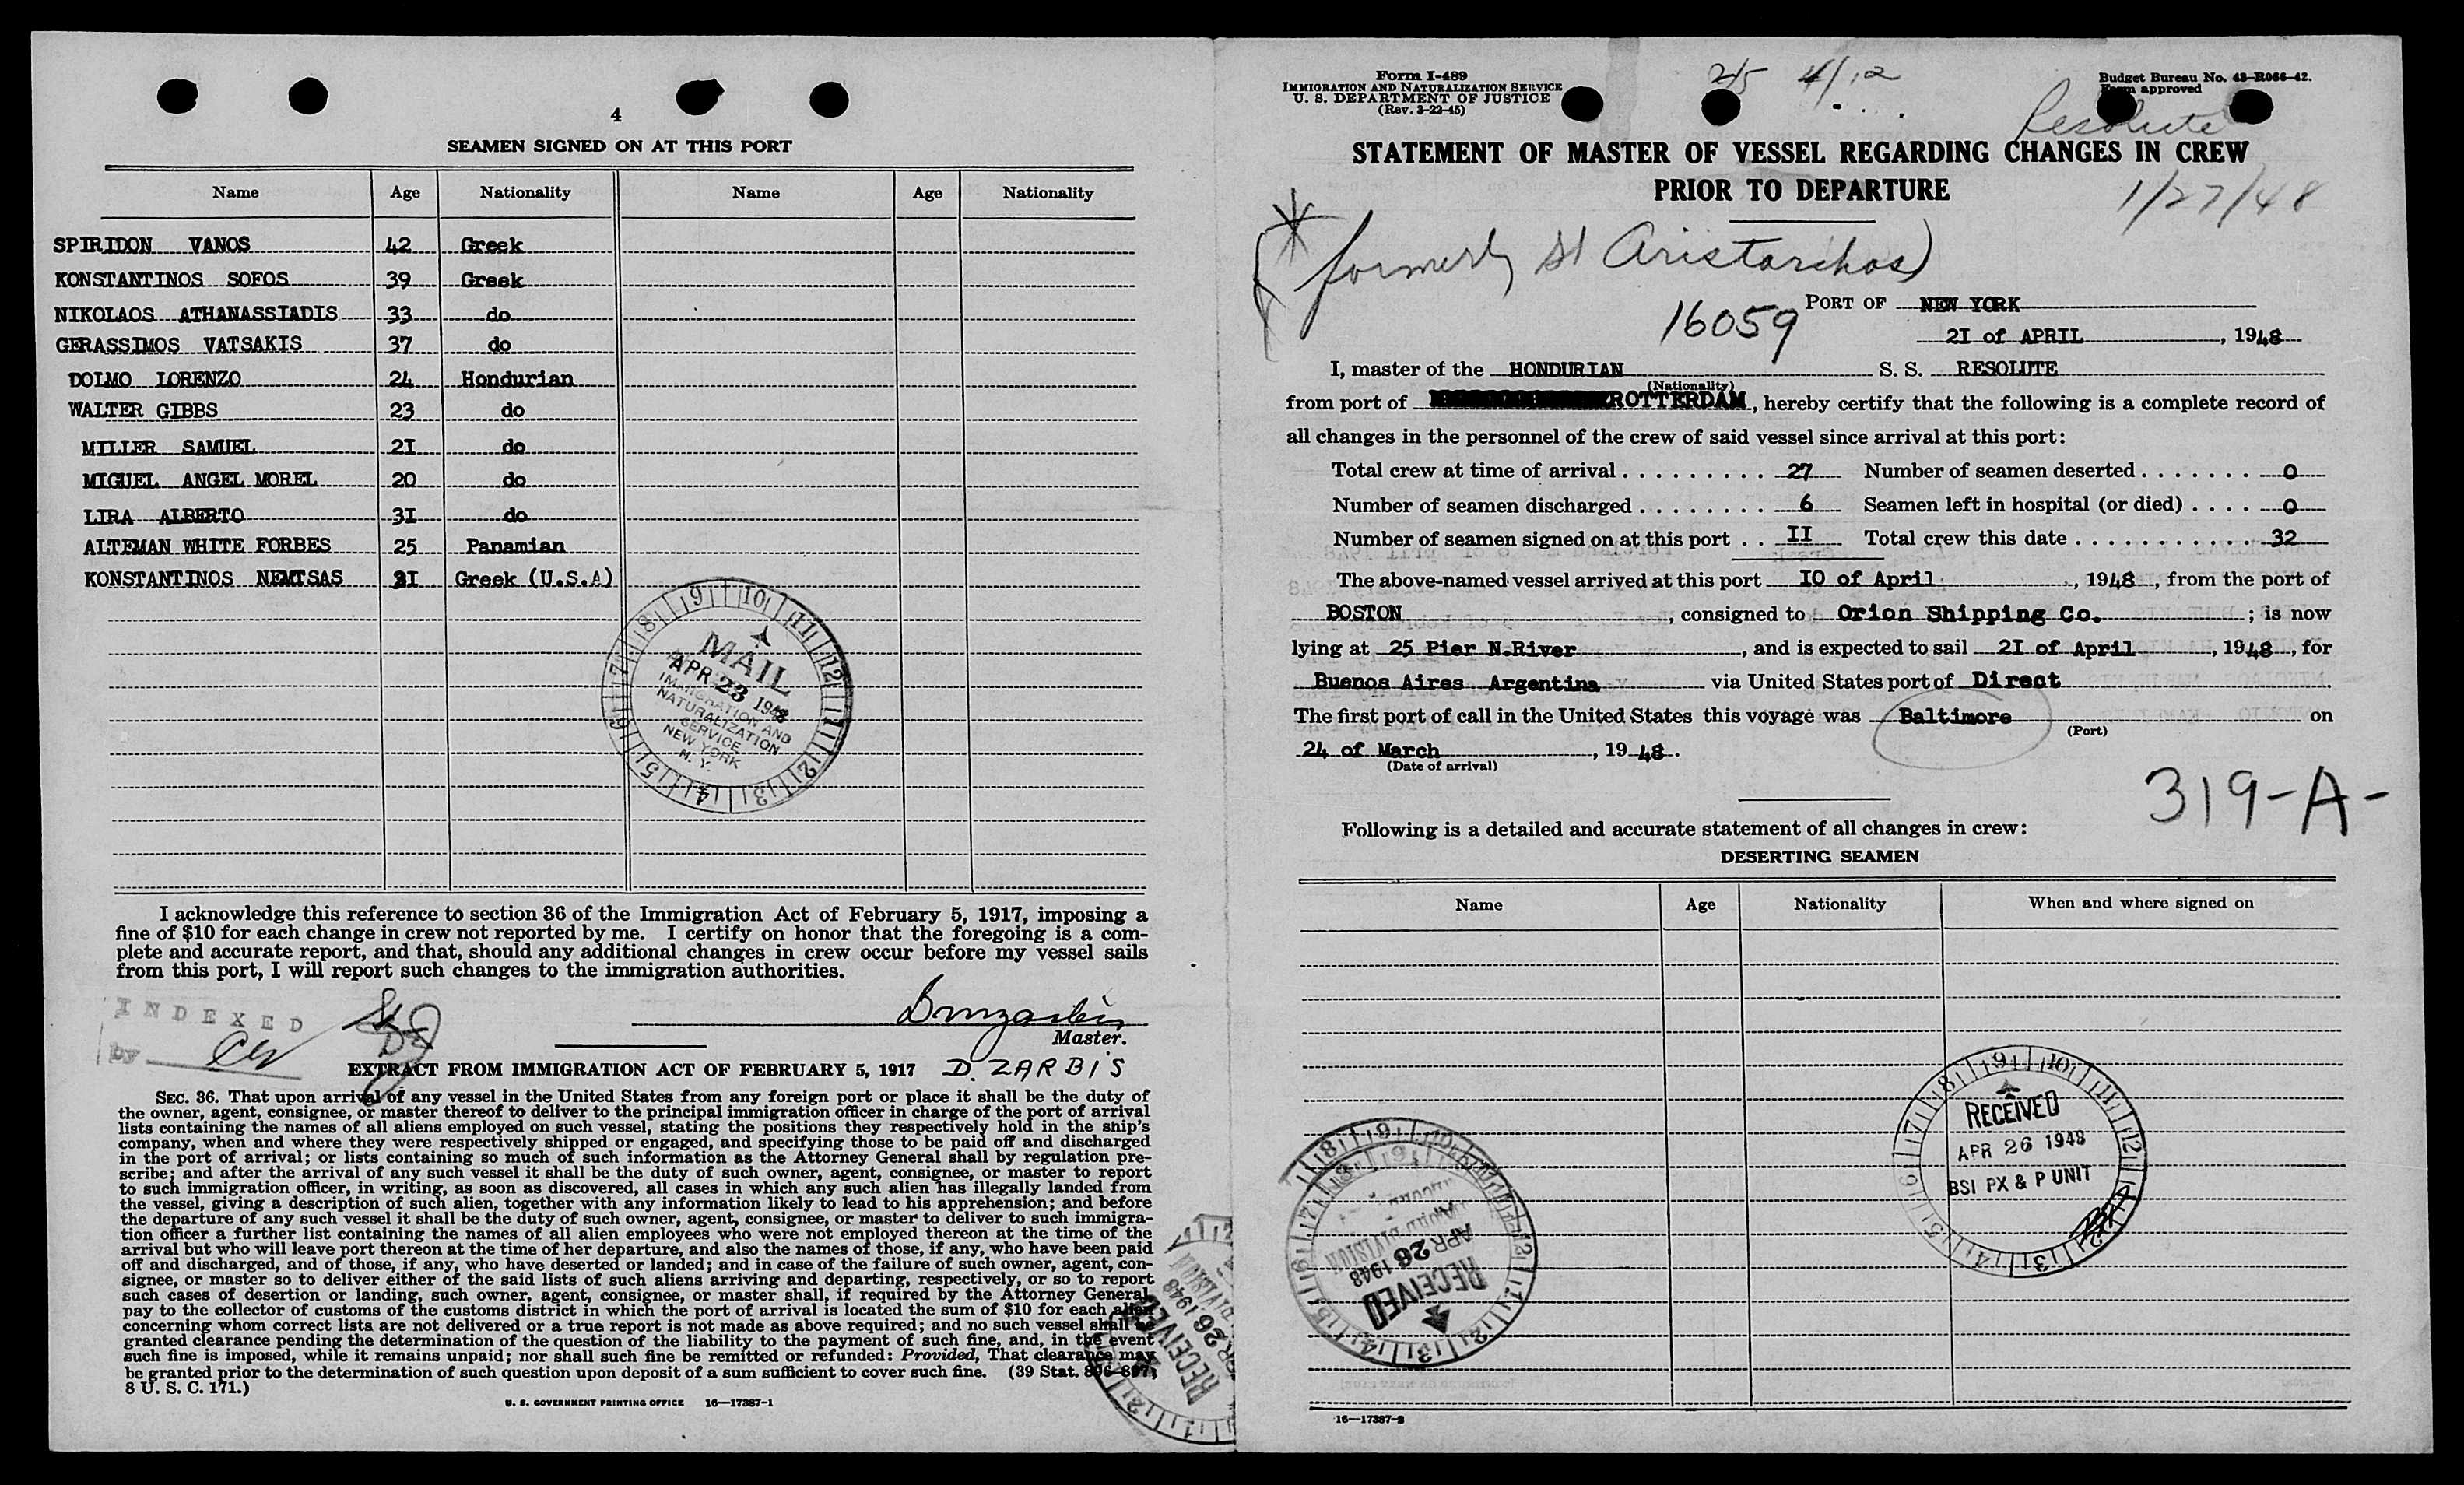 4
SEAMEN SIGNED ON AT THIS PORT
Name Age Nationality Name Age Nationality
SPIRIDON VANOS 42 Greek
KONSTANTINOS SOFOS 39 Greek
NIKOLAOS ATHANASSIADIS 33 do
GERASSIMOS VATSAKIS 37 do
DOLMO LORENZO 24 Hondurian
WALTER GIBBS 23 do
MILLER SAMUEL 2I do
MIGUEL ANGEL MOREL 20 do
LIRA ALBERTO 3I do
ALTEMAN WHITE FORBES 25 Panamian
KONSTANTINOS NEMTSAS 3I Greek (U.S.A)
MAIL
APR 23 1948
IMMIGRATION AND
NATURALIZATION
SERVICE
NEW YORK
N. Y.
I acknowledge this reference to section 36 of the Immigration Act of February 5, 1917, imposing a
fine of $10 for each change in crew not reported by me. I certify on honor that the foregoing is a com-
plete and accurate report, and that, should any additional changes in crew occur before my vessel sails
from this port, I will report such changes to the immigration authorities.
INDEXED
by
Master.
D. ZARBIS
EXTRACT FROM IMMIGRATION ACT OF FEBRUARY 5, 1917
SEC. 36. That upon arrival of any vessel in the United States from any foreign port or place it shall be the duty of
the owner, agent, consignee, or master thereof to deliver to the principal immigration officer in charge of the port of arrival
lists containing the names of all aliens employed on such vessel, stating the positions they respectively hold in the ship's
company, when and where they were respectively shipped or engaged, and specifying those to be paid off and discharged
in the port of arrival; or lists containing so much of such information as the Attorney General shall by regulation pre-
scribe; and after the arrival of any such vessel it shall be the duty of such owner, agent, consignee, or master to report
to such immigration officer, in writing, as soon as discovered, all cases in which any such alien has illegally landed from
the vessel, giving a description of such alien, together with any information likely to lead to his apprehension; and before
the departure of any such vessel it shall be the duty of such owner, agent, consignee, or master to deliver to such immigra-
tion officer a further list containing the names of all alien employees who were not employed thereon at the time of the
arrival but who will leave port thereon at the time of her departure, and also the names of those, if any, who have been paid
off and discharged, and of those, if any, who have deserted or landed; and in case of the failure of such owner, agent, con-
signee, or master so to deliver either of the said lists of such aliens arriving and departing, respectively, or so to report
such cases of desertion or landing, such owner, agent, consignee, or master shall, if required by the Attorney General,
pay to the collector of customs of the customs district in which the port of arrival is located the sum of $10 for each alien
concerning whom correct lists are not delivered or a true report is not made as above required; and no such vessel shall be
granted clearance pending the determination of the question of the liability to the payment of such fine, and, in the event
such fine is imposed, while it remains unpaid; nor shall such fine be remitted or refunded: Provided, That clearance may
be granted prior to the determination of such question upon deposit of a sum sufficient to cover such fine. (39 Stat. 896-897;
8 U. S. C. 171.)
U. S. GOVERNMENT PRINTING OFFICE 16—17387-1
RECEIVED
APR 26 1948
DIVISION
Form I-489
IMMIGRATION AND NATURALIZATION SERVICE
U. S. DEPARTMENT OF JUSTICE
(Rev. 3-22-45)
4/12
Budget Bureau No. 43-R066-42.
Form approved
Resolute
STATEMENT OF MASTER OF VESSEL REGARDING CHANGES IN CREW
PRIOR TO DEPARTURE
1/27/48
(formerly St Aristarchos)
16059
PORT OF NEW YORK
2I of APRIL, 1948
I, master of the HONDURIAN S. S. RESOLUTE
(Nationality)
from port of ROTTERDAM, hereby certify that the following is a complete record of
all changes in the personnel of the crew of said vessel since arrival at this port:
Total crew at time of arrival 27 Number of seamen deserted 0
Number of seamen discharged 6 Seamen left in hospital (or died) 0
Number of seamen signed on at this port II Total crew this date 32
The above-named vessel arrived at this port IO of April, 1948, from the port of
BOSTON, consigned to Orion Shipping Co.; is now
lying at 25 Pier N.River, and is expected to sail 2I of April, 1948, for
Buenos Aires Argentina via United States port of Direct
The first port of call in the United States this voyage was Baltimore on
(Port)
24 of March, 1948.
(Date of arrival)
319-A-
Following is a detailed and accurate statement of all changes in crew:
DESERTING SEAMEN
Name Age Nationality When and where signed on
RECEIVED
APR 26 1948
BSI PX & P UNIT
RECEIVED
APR 26 1948
DIVISION
16—17387-2